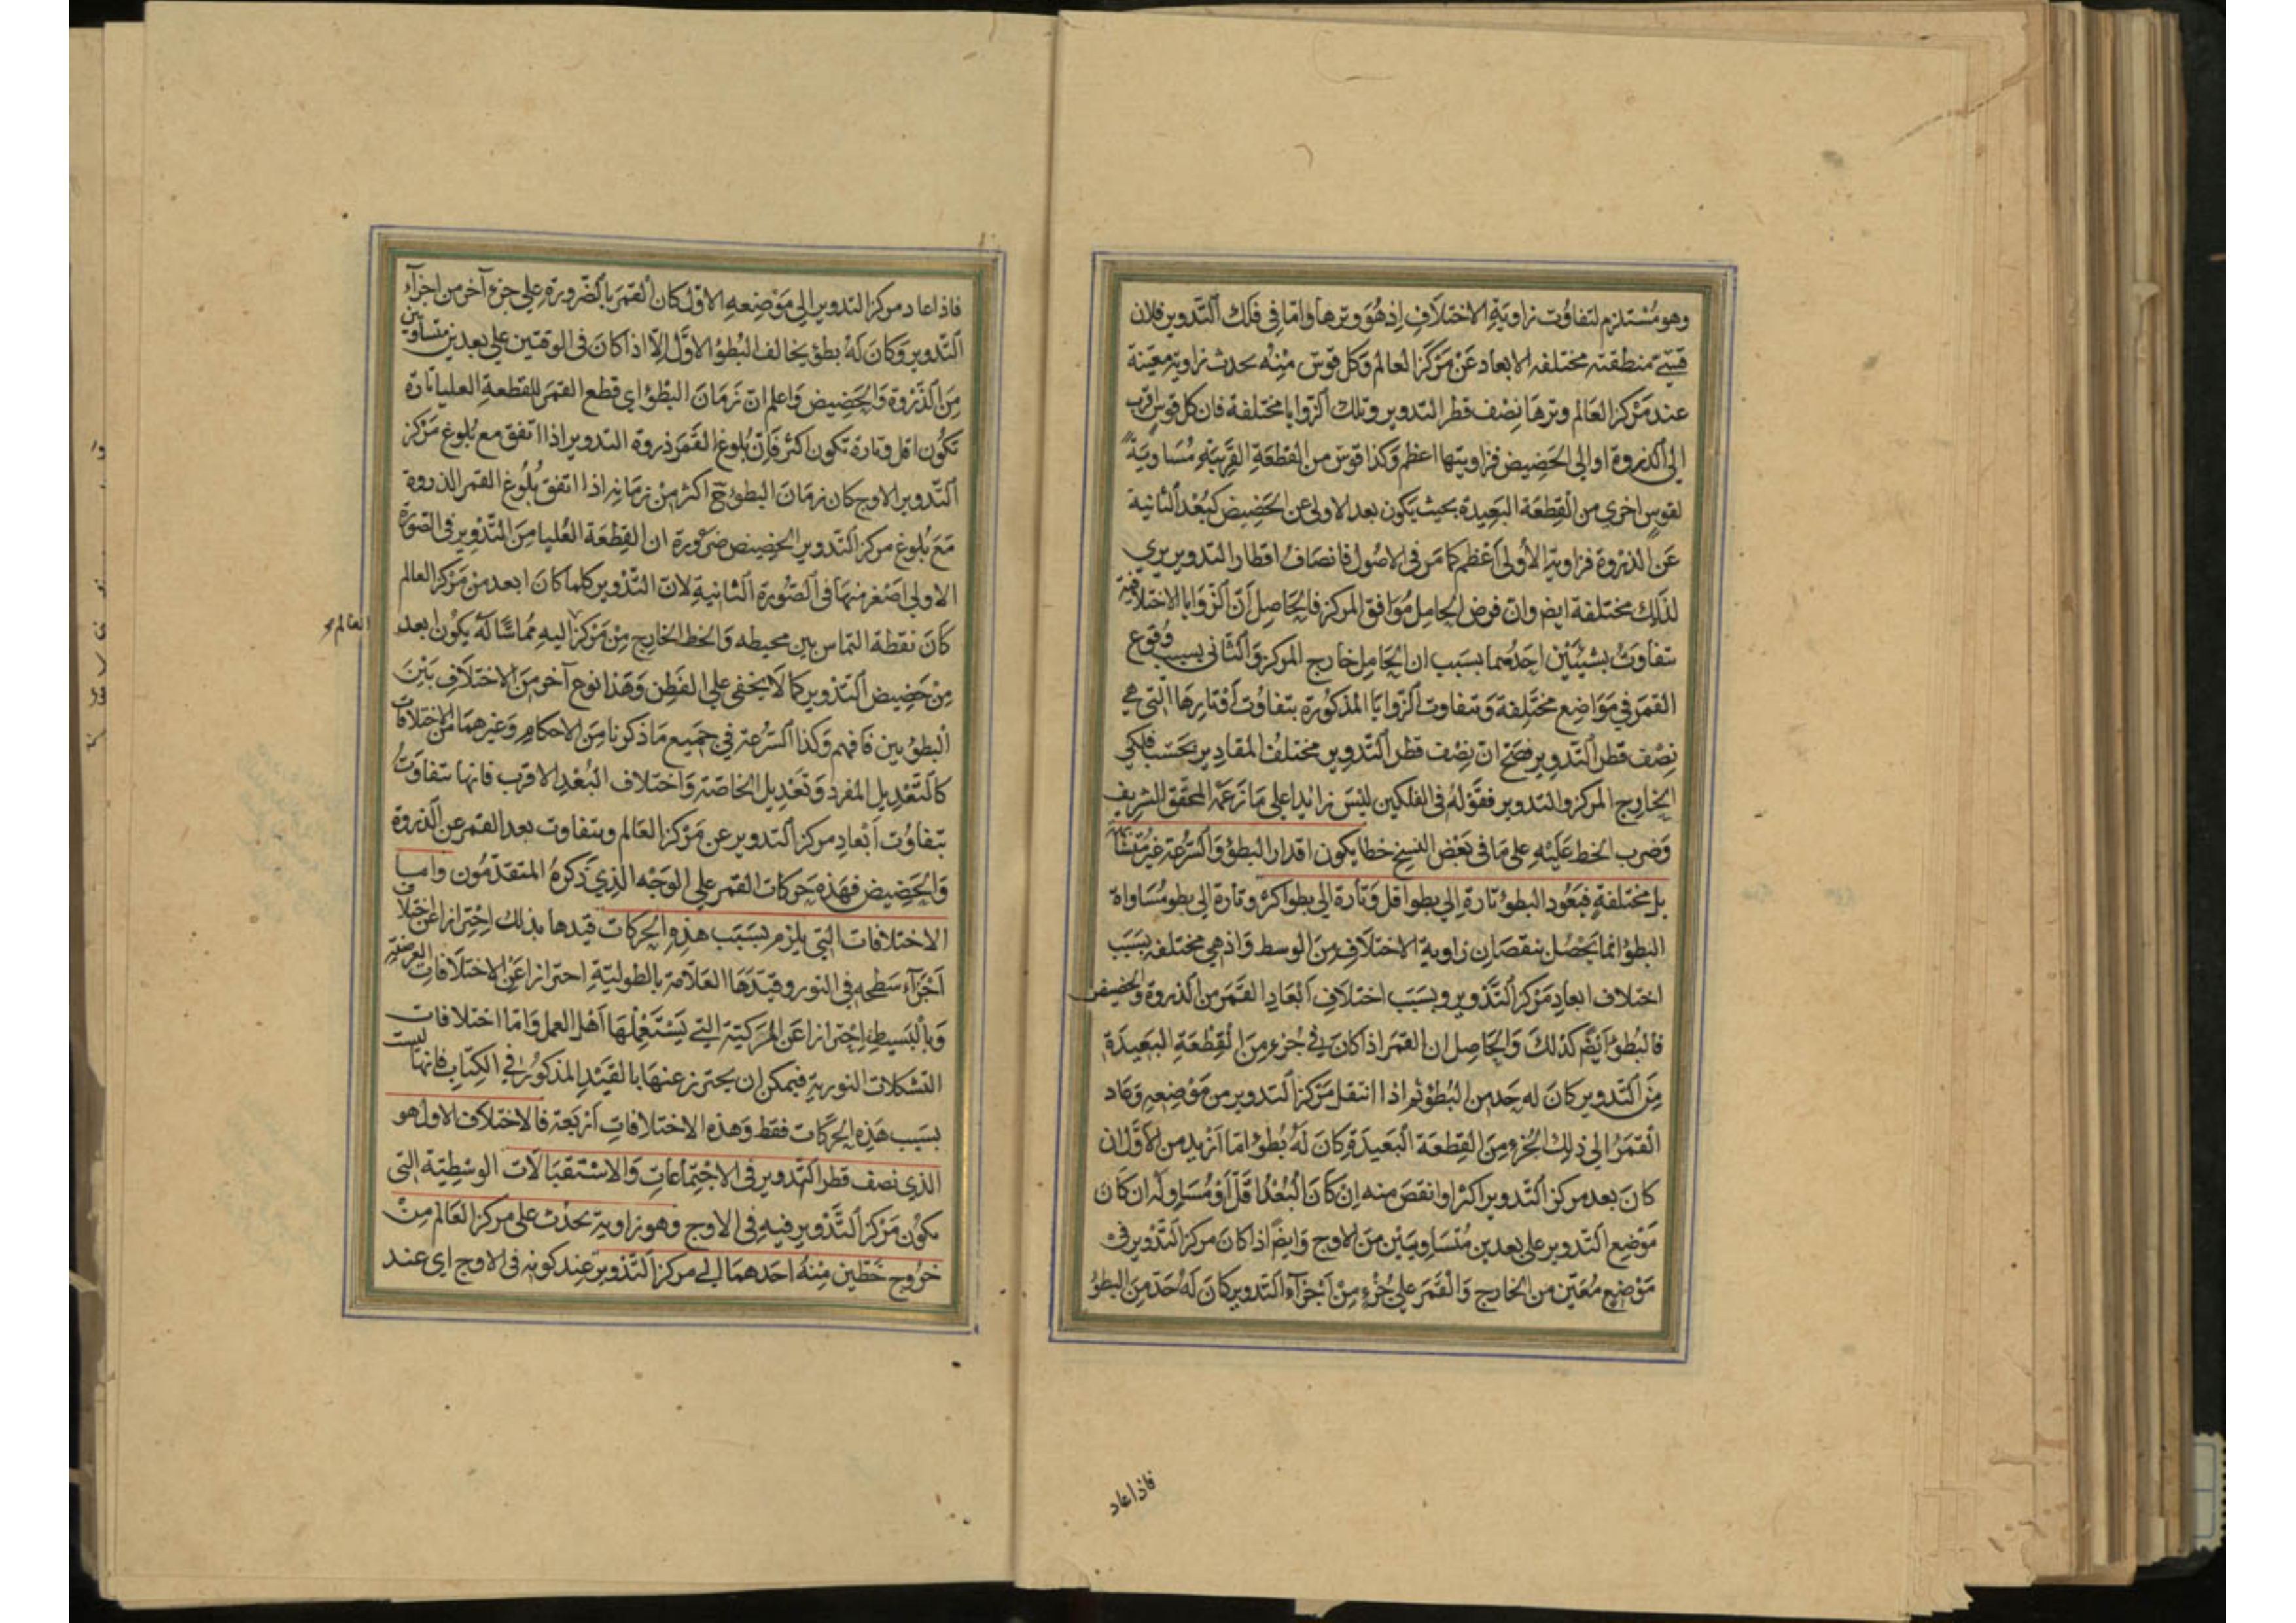 وهو مستلزم لتفاوت زاوية الاختلاف اذ هو وترها واما في فلك التدوير فلان
قسي منطقته مختلفه الابعاد عن مركز العالم وكل قوس منه يحدث زاوية معينة
عند مركز العالم وترها نصف قطر التدوير وتلك الزوايا مختلفة فان كل قوس اقرب
الى الذروة او الى الحضيض فزاويتها اعظم وكذا قوس من القطعة القريبة مساوية
لقوس اخرى من القطعة البعيدة بحيث يكون بعد الاولى عن الحضيض كبعد الثانية
عن الذروة فزاوية الأولى اعظم كما مر في الاصول فانصاف اقطار التدوير يري
لذلك مختلفة ايض وان فرض الحامل موافق المركز فالحاصل أن الزوايا الاختلافية
تتفاوت بشيئين احدهما بسبب ان الحامل خارج المركز والثاني بسبب وقوع
القمر في مواضع مختلفة وتتفاوت الزوايا المذكورة بتفاوت أوتارها التي هي
نصف قطر التدوير فصح ان نصف قطر التدوير مختلف المقادير بحسب فلكي
الخارج المركز والتدوير فقوله في الفلكين ليس زايدا على ما زعمه المحقق الشريف
وضرب الخط عليه على ما في بعض النسخ خطا يكون اقدار البطؤ والسرعة غير متشابهة
بل مختلفة فيعود البطؤ تارة الي بطو اقل وتارة الى بطو اكثر وتارة الى بطو مساواة
البطؤ انما يحصل بنقصان زاوية الاختلاف من الوسط واذ هي مختلفه بسبب
اختلاف ابعاد مركز التدوير وبسبب اختلاف ابعاد القمر من الذروة والحضيض
فالبطؤ ايض كذلك والحاصل ان القمر اذا كان في جزء من القطعة البعيدة
من التدوير كان له حد من البطؤ ثم اذا انتقل مركز التدوير من موضعه وعاد
القمر الى ذلك الجزء من القطعة البعيدة كان له بطؤ اما أزيد من الأول ان
كان بعد مركز التدوير اكثر او انقص منه ان كان البعد اقل أو مساو له ان كان
موضع التدوير على بعدين متساويين من الاوج وايض اذا كان مركز التدوير في
موضع معين من الخارج والقمر على جزء من اجزاء التدوير كان له حد من البطؤ
فاذا عاد
فاذا عاد مركز التدوير الى موضعه الاول كان القمر بالضرورة على جزء آخر من اجزاء
التدوير وكان له بطؤ يخالف البطؤ الاول الا اذا كان في الوقتين على بعدين متساويين
من الذروة والحضيض واعلم ان زمان البطؤ اي قطع القمر للقطعة العليا تارة
تكون اقل وتارة تكون اكثر فان بلوغ القمر ذروة التدوير اذا اتفق مع بلوغ مركز
التدوير الاوج كان زمان البطؤ ح اكثر من زمانه اذا اتفق بلوغ القمر الذروة
مع بلوغ مركز التدوير الحضيض ضرورة ان القطعة العليا من التدوير في الصورة
الاولى اصغر منها في الصورة الثانية لان التدوير كلما كان ابعد من مركز العالم
كان نقطة التماس بين محيطه والخط الخارج من مركز اليه مماسا له يكون ابعد
العالم
من حضيض التدوير كما لا يخفى على الفطن وهذا نوع آخر من الاختلاف بين
البطؤ بين فافهم وكذا السرعة في جميع ما ذكرنا من الاحكام وغيرهما من الاختلافات
كالتعديل المفرد وتعديل الخاصة واختلاف البعد الاقرب فانها تتفاوت
بتفاوت أبعاد مركز التدوير عن مركز العالم وبتفاوت بعد القمر عن الذروة
والحضيض فهذه حركات القمر على الوجه الذي ذكره المتقدمون واما
الاختلافات التي يلزم بسبب هذه الحركات قيدها بذلك احترازا عن اختلاف
اجزاء سطحه في النور وقيدها العلامة بالطولية احترازا عن الاختلافات العرضية
وبالبسيط احترازا عن المركبة التي يستعملها أهل العمل واما اختلافات
التشكلات النورية فيمكن ان يحترز عنها بالقيد المذكور في الكتاب فانها ليست
بسبب هذه الحركات فقط وهذه الاختلافات أربعة فالاختلاف الاول هو
الذي نصف قطر التدوير في الاجتماعات والاستقبالات الوسطية التي
يكون مركز التدوير فيه في الاوج وهو زاوية تحدث على مركز العالم من
خروج خطين منه احدهما الي مركز التدوير عند كونه في الاوج اي عند